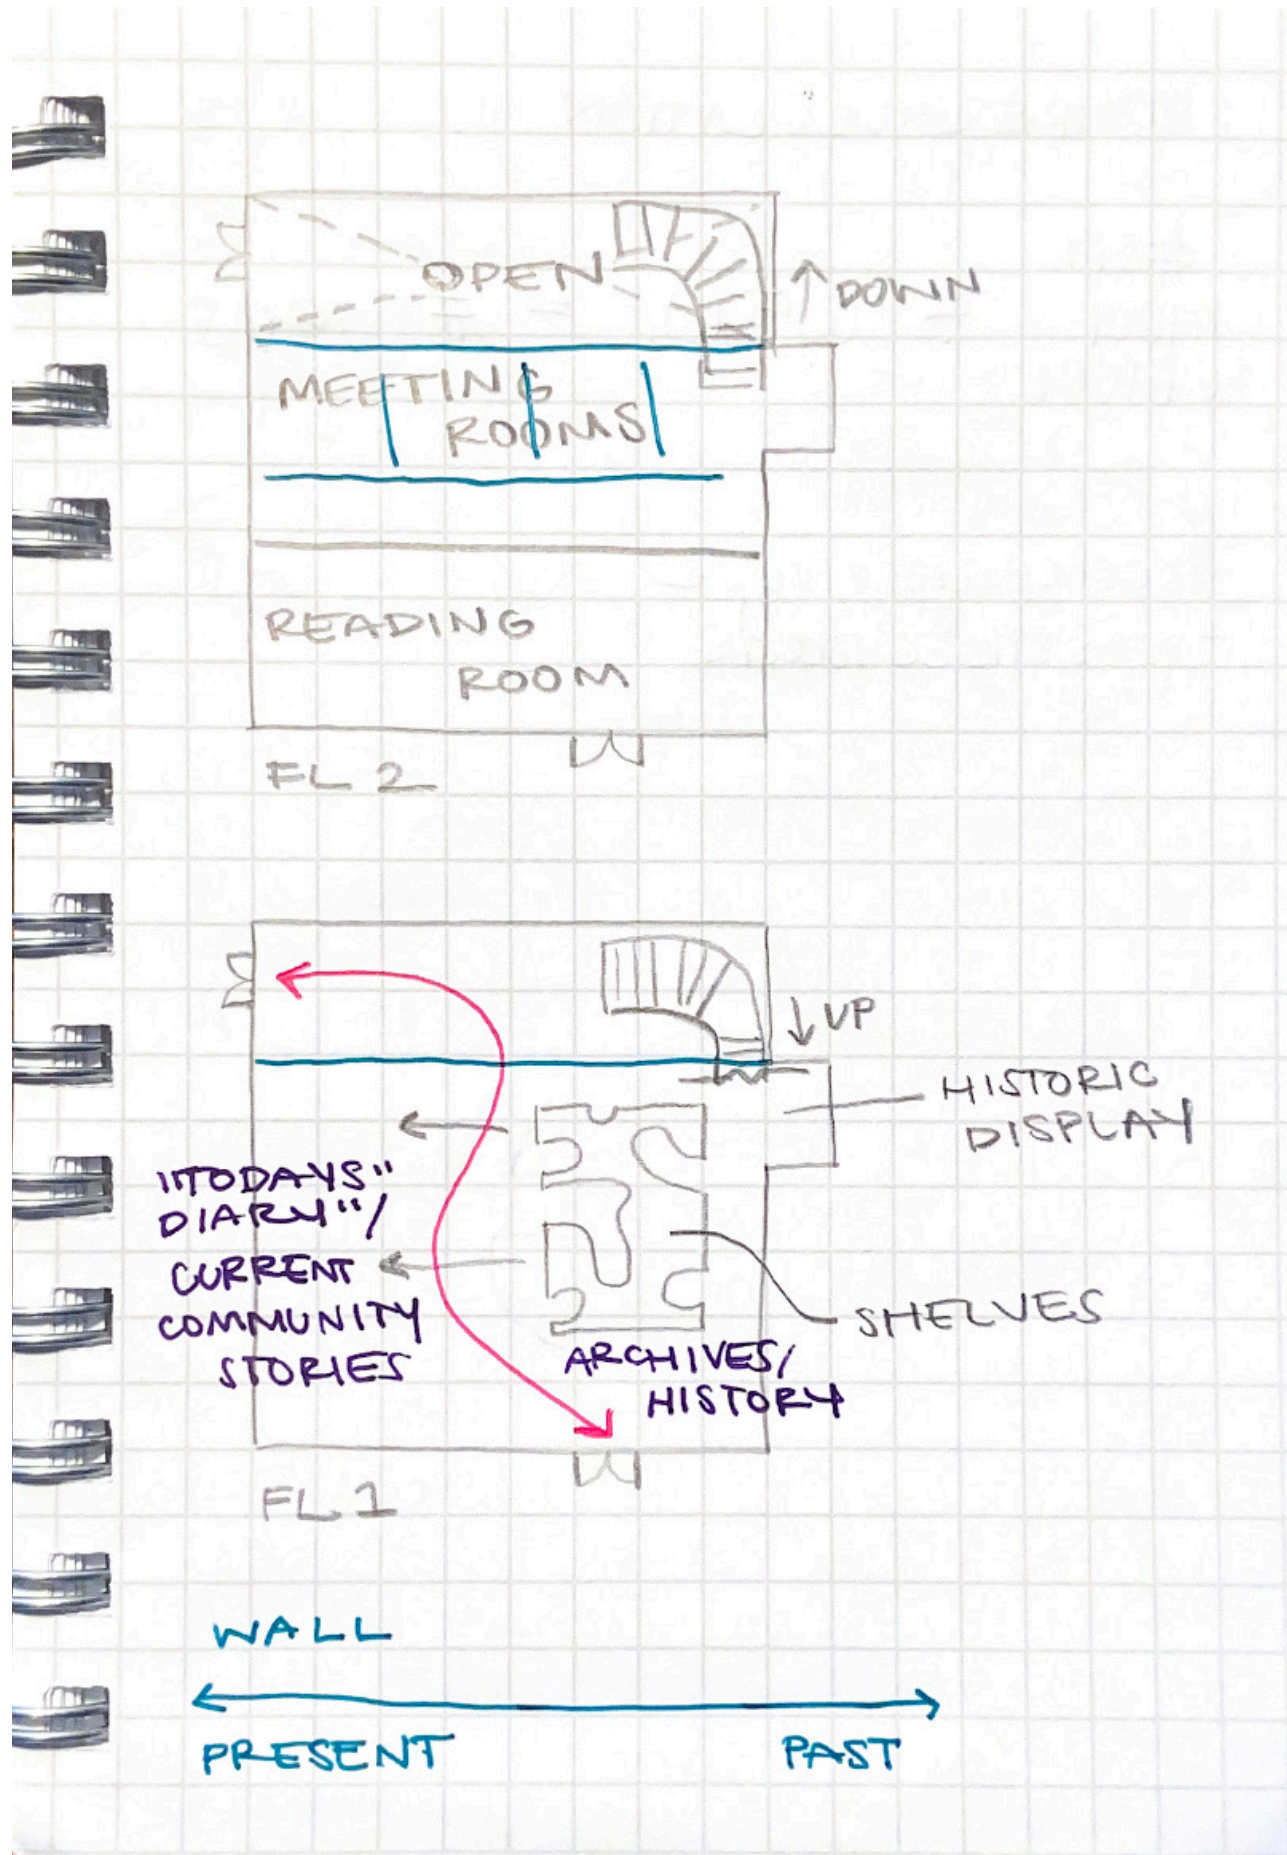 OPEN
↑ DOWN
MEETING
ROOMS
READING
ROOM
FL 2
↓ UP
HISTORIC
DISPLAY
"TODAYS"
DIARY"/
CURRENT
COMMUNITY
STORIES
SHELVES
ARCHIVES/
HISTORY
FL 1
WALL
PRESENT PAST